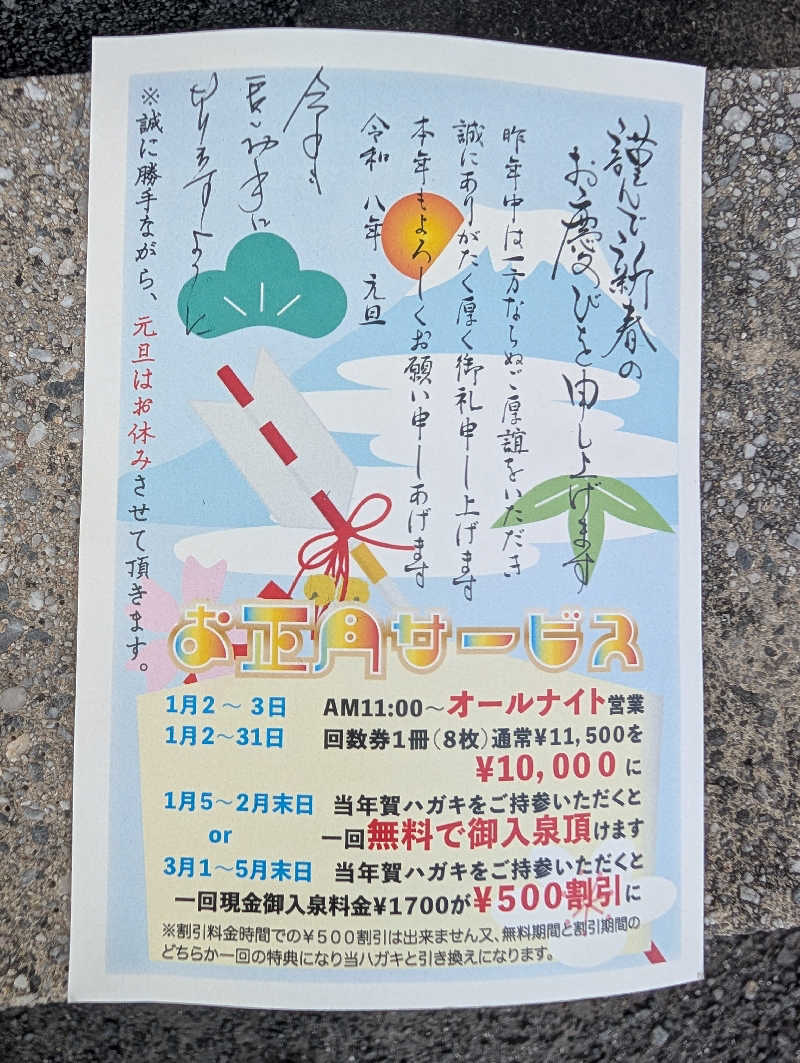 謹んで新春の
お慶びを申し上げます
昨年中は一方ならぬご厚誼をいただき
誠にありがたく厚く御礼申し上げます
本年もよろしくお願い申しあげます
令和 八年 元旦
今年も
良いお年に
なりますように
※誠に勝手ながら、元旦はお休みさせて頂きます。
お正月サービス
1月2～3日 AM11:00～オールナイト営業
1月2～31日 回数券1冊（8枚）通常¥11,500を
¥10,000に
1月5～2月末日 当年賀ハガキをご持参いただくと
or 一回無料で御入泉頂けます
3月1～5月末日 当年賀ハガキをご持参いただくと
一回現金御入泉料金¥1700が¥500割引に
※割引料金時間での¥500割引は出来ません又、無料期間と割引期間の
どちらか一回の特典になり当ハガキと引き換えになります。